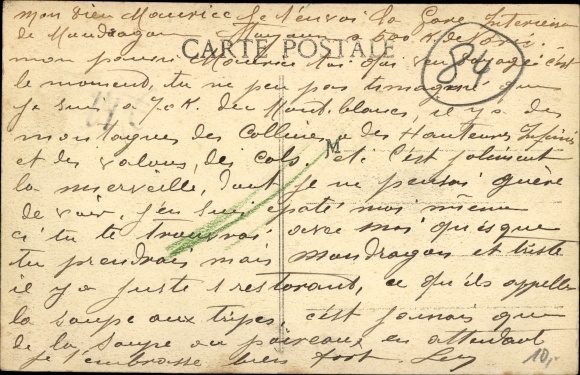 mon vieu Maurice Je t'envoi la Gare Interieur
de Mondragon a 600 K. de
CARTE POSTALE
84
mon pauvre Maurice toi qui c'est
le moment, tu ne peu pas t'imaginé que
je suis a 7. K. du Mont. blanc, il y a des
montagnes des Collines, des Hauteurs
et des valons, des cols, et c'est joliment
la merveille, dont je ne pensai guère
de voir, j'en suis epaté moi meme
ci tu te trouvrai avec moi qu'esque
tu prendrais mais mondragon et triste
il y a juste 1 restorant, ce qu'ils appelle
la soupe aux tripes, c'est jamais que
de la Soupe au poireaux en attendant
je t'embrasse bien fort.
M
10,-